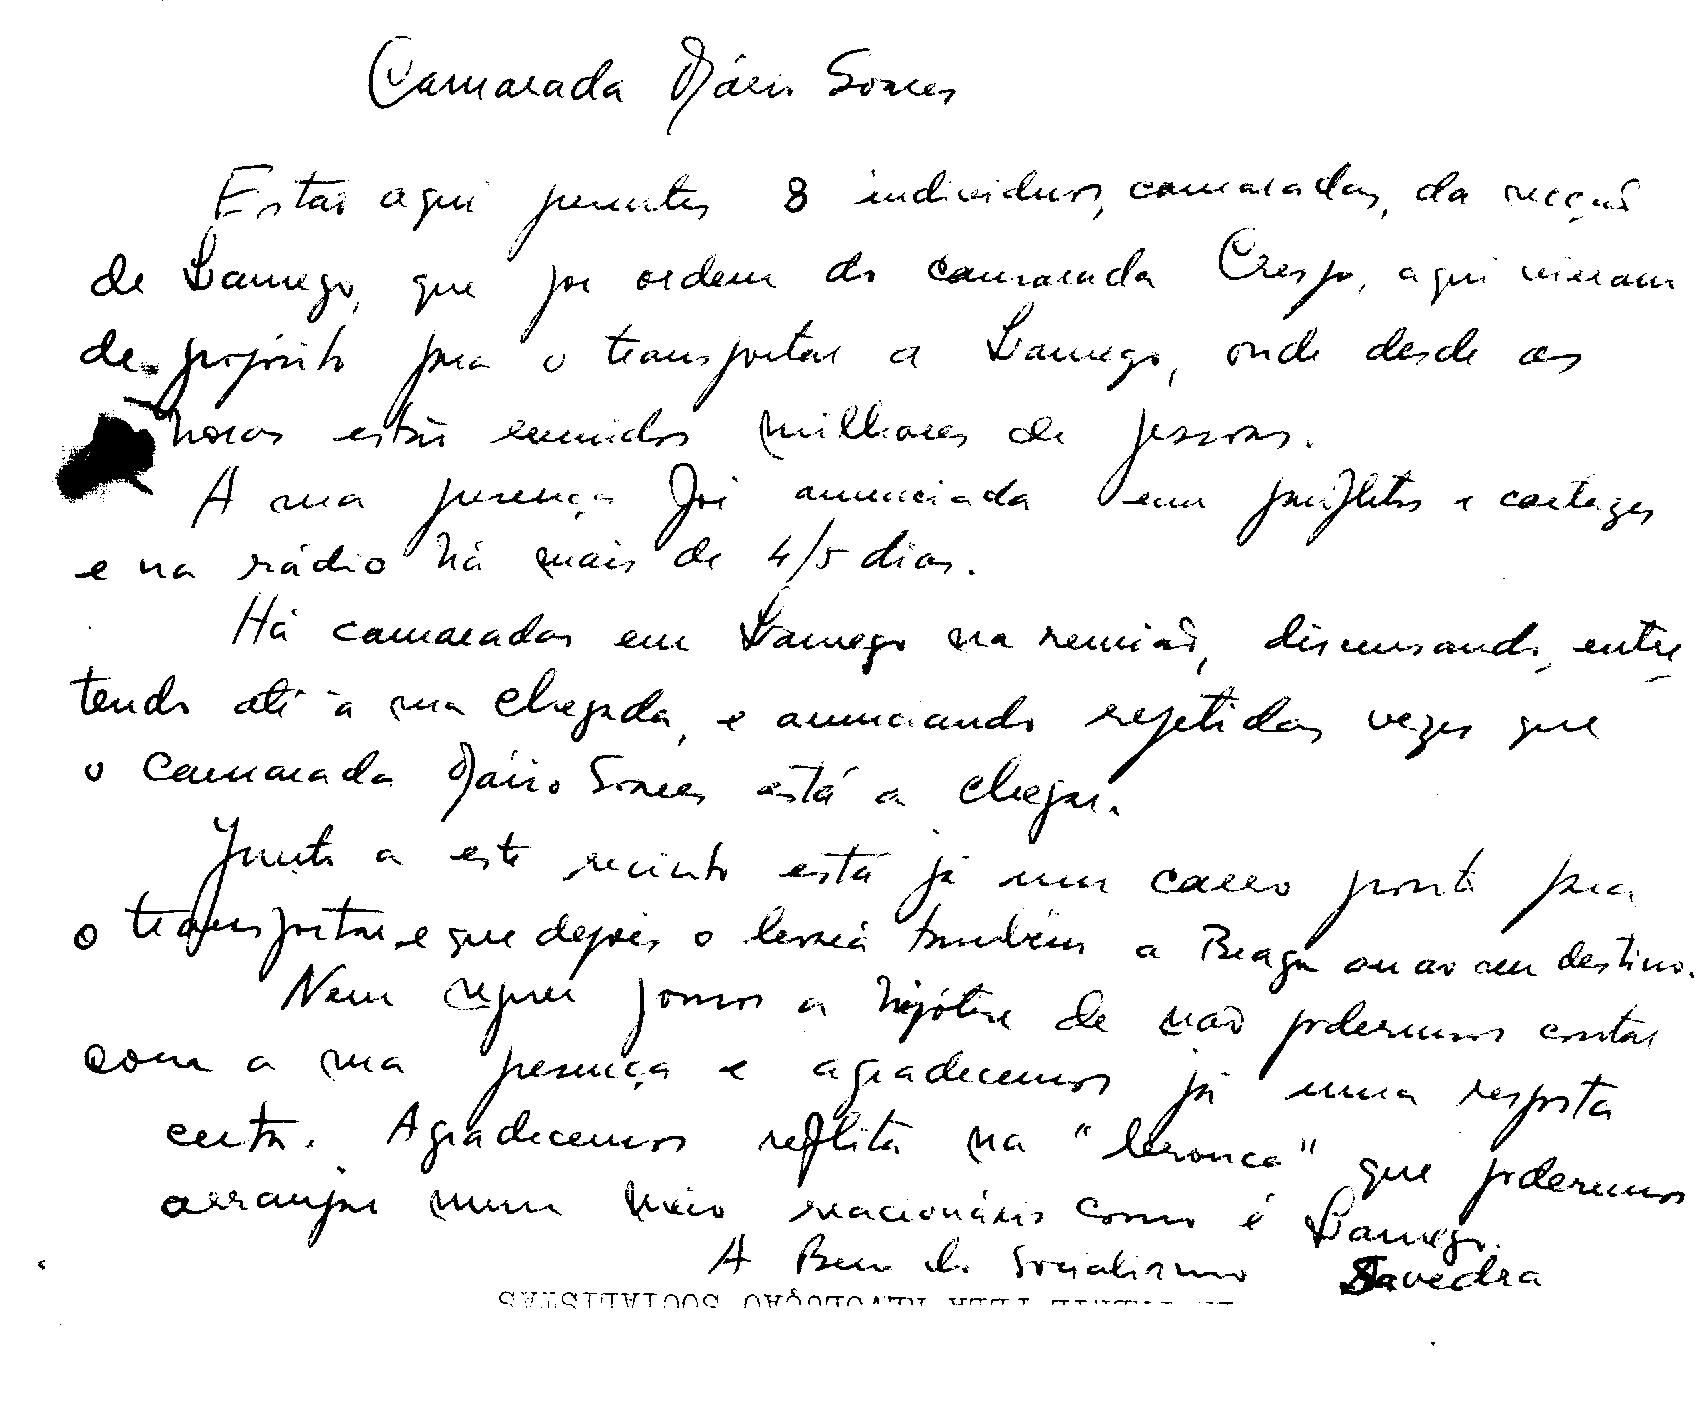 Camarada Mário Soares
Estão aqui presentes 8 individuos, camaradas, da secção
de Lamego, que por ordem do camarada Crespo, aqui vieram
de propósito para o transportar a Lamego, onde desde as
horas estão reunidos milhares de pessoas.
A sua presença foi anunciada em panfletos e cartazes
e na rádio há mais de 4/5 dias.
Há camaradas em Lamego na reunião, discursando, entre
tendo até à sua chegada, e anunciando repetidas vezes que
o camarada Mário Soares está a chegar.
Junto a este recinto está já um carro pronto para
o transportar e que depois o levará também a Braga ou ao seu destino.
Nem sequer pomos a hipótese de não podermos contar
com a sua presença e agradecemos já uma resposta
certa. Agradecemos reflita na "bronca" que poderemos
arranjar num meio reacionário como é Lamego.
A Bem do Socialismo Savedra